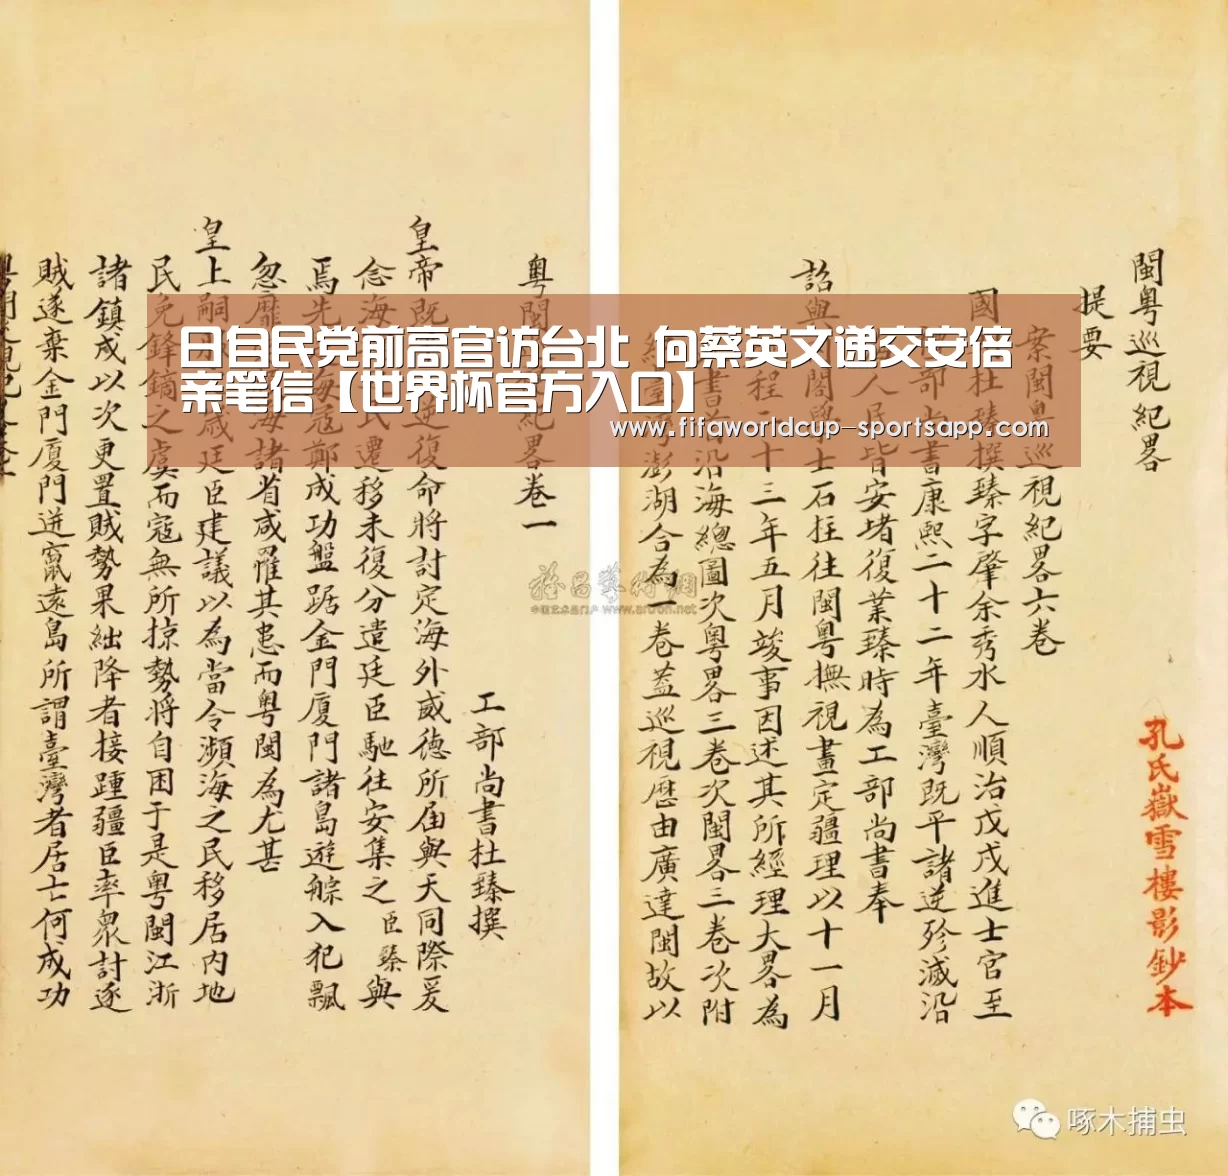 閩粵巡視紀畧
提要
案閩粵巡視紀畧六卷
國杜臻撰臻字肇余秀水人順治戊戌進士官至
部尚書康熙二十二年臺灣既平諸逆殄滅沿
人民皆安堵復業臻時為工部尚書奉
詔與閣學士石柱往閩粵撫視畫定疆理以十一月
程二十三年五月竣事因述其所經理大畧為
書首沿海總圖次粵畧三卷次閩畧三卷次附
紀臺灣澎湖合為一卷蓋巡視歷由廣達閩故以
孔氏嶽雪樓影鈔本
粵閩紀畧卷一
工部尚書杜臻撰
皇帝既逆復命將討定海外威德所届與天同際爰
念海民遷移未復分遣廷臣馳往安集之臣臻與
焉先海寇鄭成功盤踞金門廈門諸島遊艅入犯飄
忽靡海諸省咸罹其患而粵閩為尤甚
皇上嗣歲廷臣建議以為當令瀕海之民移居內地
民免鋒鏑之虞而寇無所掠勢將自困于是粵閩江浙
諸鎮戍以次更置賊勢果絀降者接踵疆臣率眾討逐
賊遂棄金門廈門迸竄遠島所謂臺灣者居亡何成功
日自民党前高官访台北 向蔡英文递交安倍
亲笔信【世界杯官方入口】
www.fifaworldcup-sportsapp.com
啄木捕虫